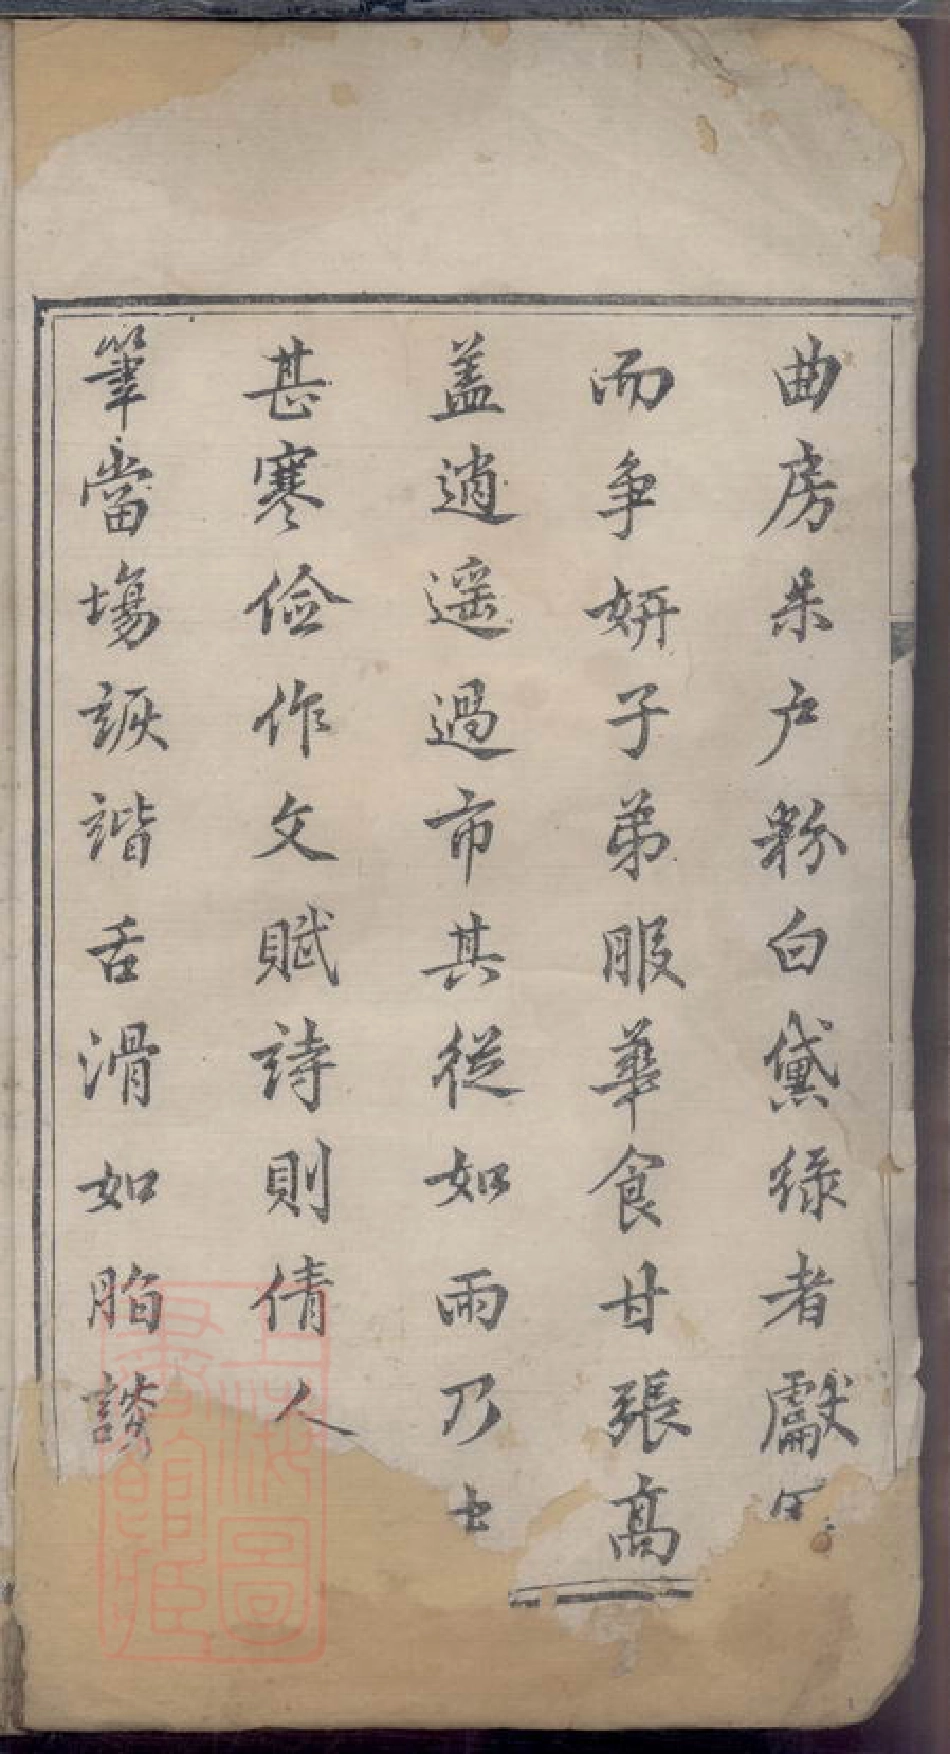 曲房朱户粉白黛緑者獻
而争妍子弟服華食甘張髙
盖逍遥過市其從如雨乃
甚寒俭作文賦詩則倩人
筆當塲詼諧舌滑如脂談
上海圖書館藏